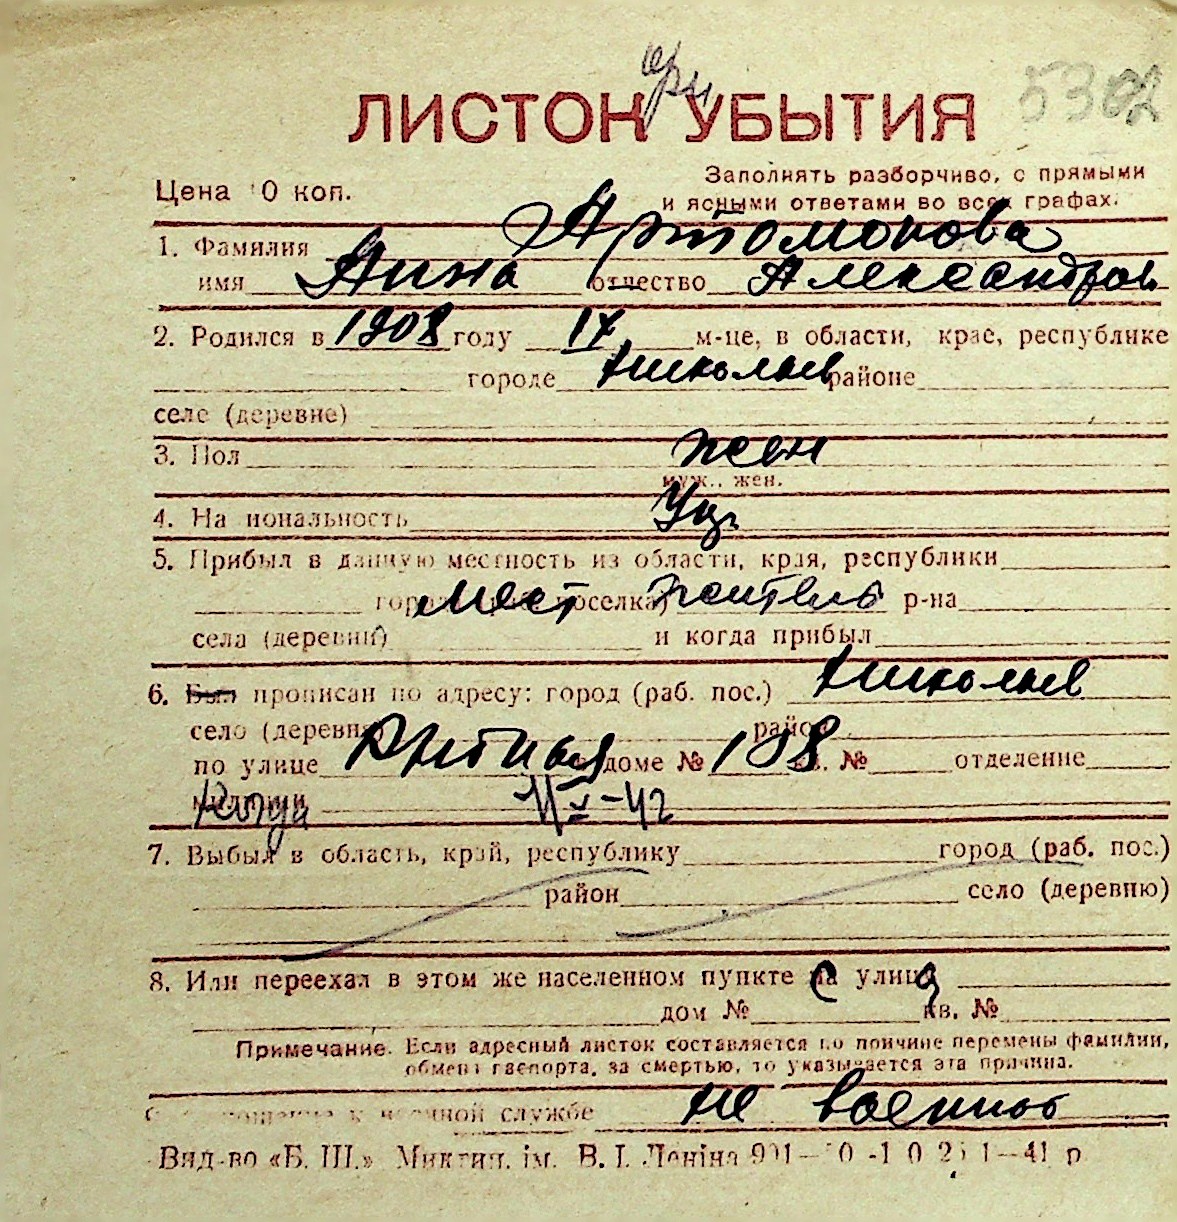 ЛИСТОК при УБЫТИЯ
Цена 0 коп.
Заполнять разборчиво, с прямыми
и ясными ответами во всех графах.
1. Фамилия Артомонова
имя Анна отчество Александров
2. Родился в 1908 году IV м-це, в области, крае, республике
городе Николаев районе
селе (деревне)
3. Пол жен
муж., жен.
4. Национальность Укр
5. Прибыл в данную местность из области, края, республики
города мест поселка) житель р-на
села (деревни) и когда прибыл
6. Был прописан по адресу: город (раб. пос.) Николаев
село (деревня) район
по улице доме № 108 кв. № отделение
милиции Когда
7. Выбыл в область, край, республику город (раб. пос.)
район село (деревню)
8. Или переехал в этом же населенном пункте на улицу
дом № кв. №
Примечание. Если адресный листок составляется по причине перемены фамилии,
обмена паспорта, за смертью, то указывается эта причина.
к военной службе не военноо
Вид-во «Б. Ш.» Микол. ім. В. І. Леніна